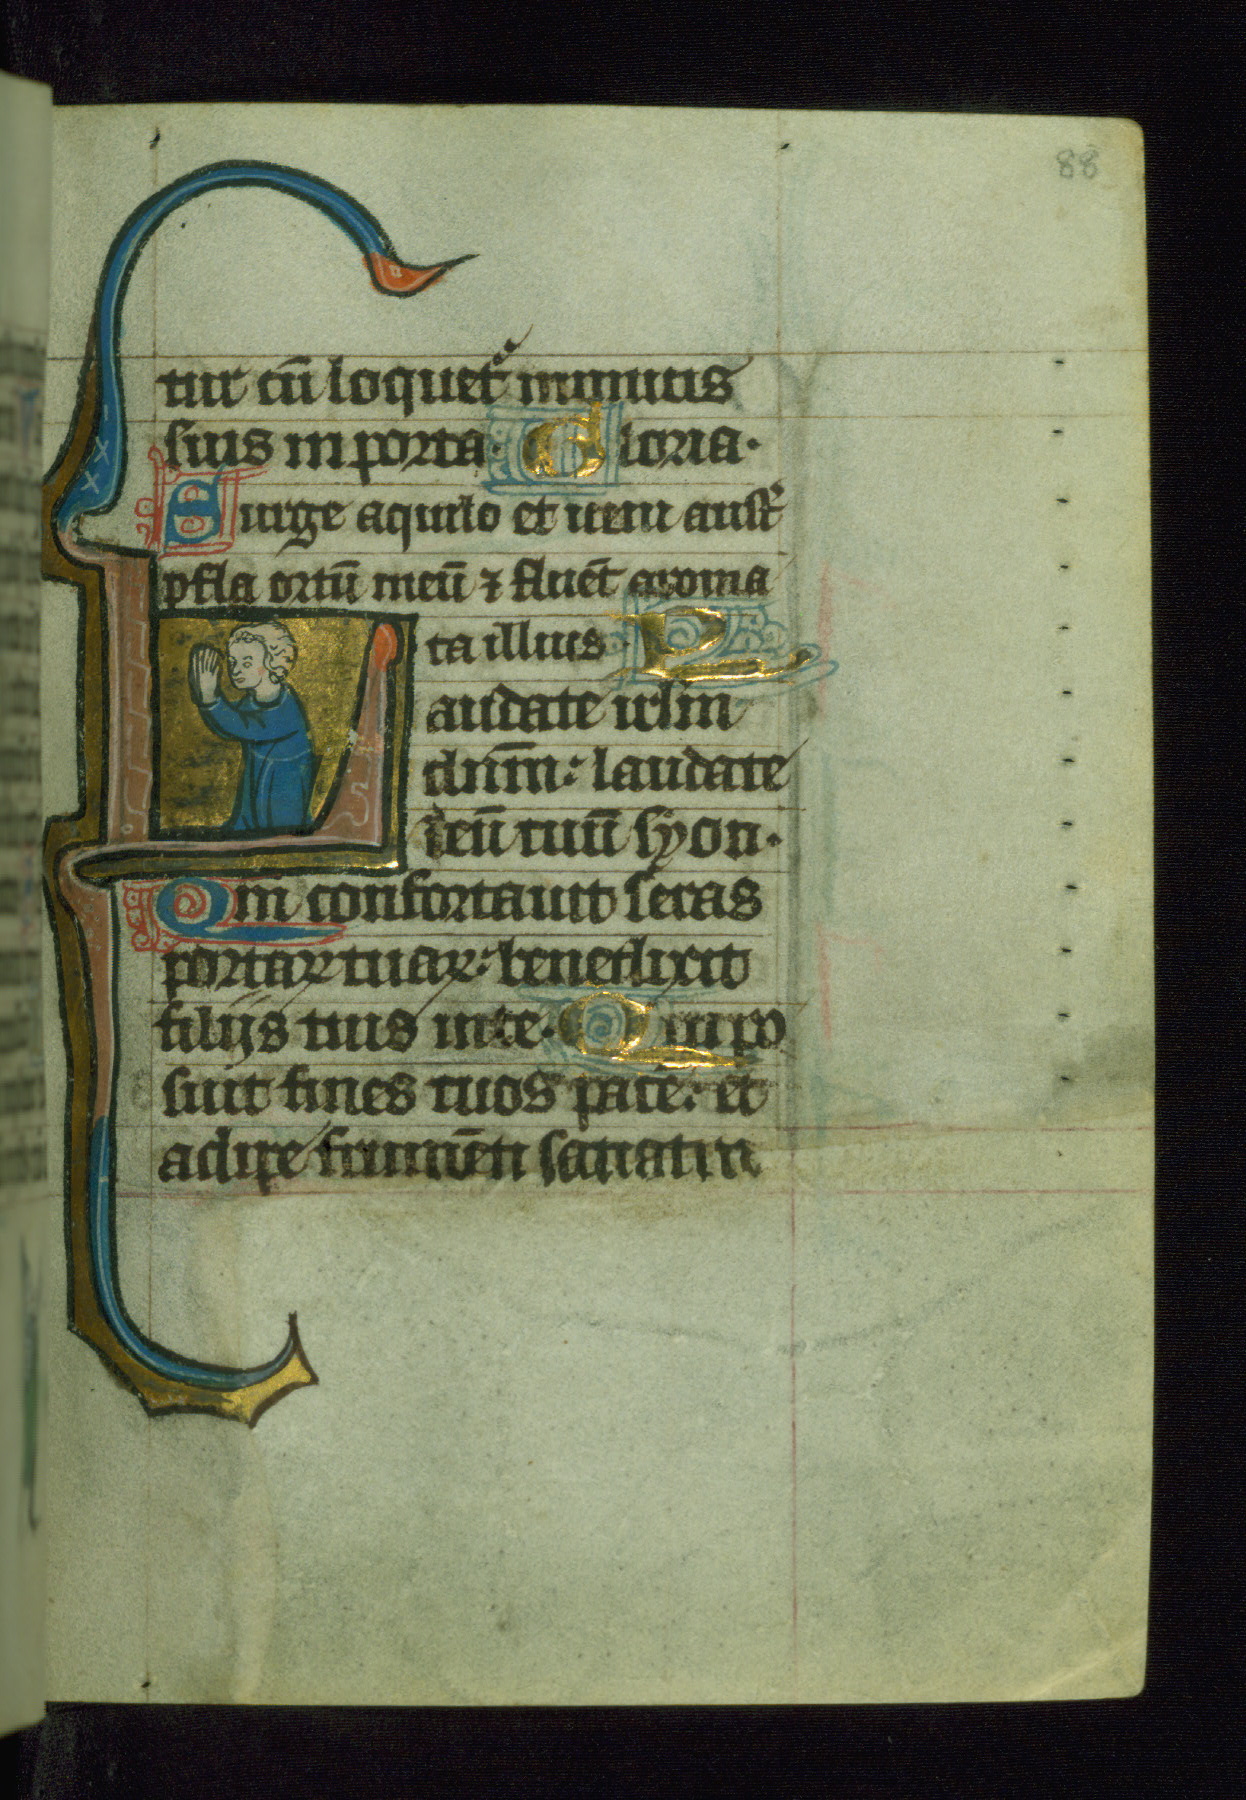 88
tur cū loquet᷑ inimicis
suis in porta· Gloria·
Surge aquilo et veni aust᷑
pfla ortū meū ⁊ fluēt aroma
ta illius· P̄s
Laudate irl̄m
dn̄m: laudate
deū tuū syon·
Qm̄ confortauit seras
portaꝝ tuaꝝ: benedixit
filijs tuis in te· Qui po
suit fines tuos pacē: et
adipe frumēti satiat in